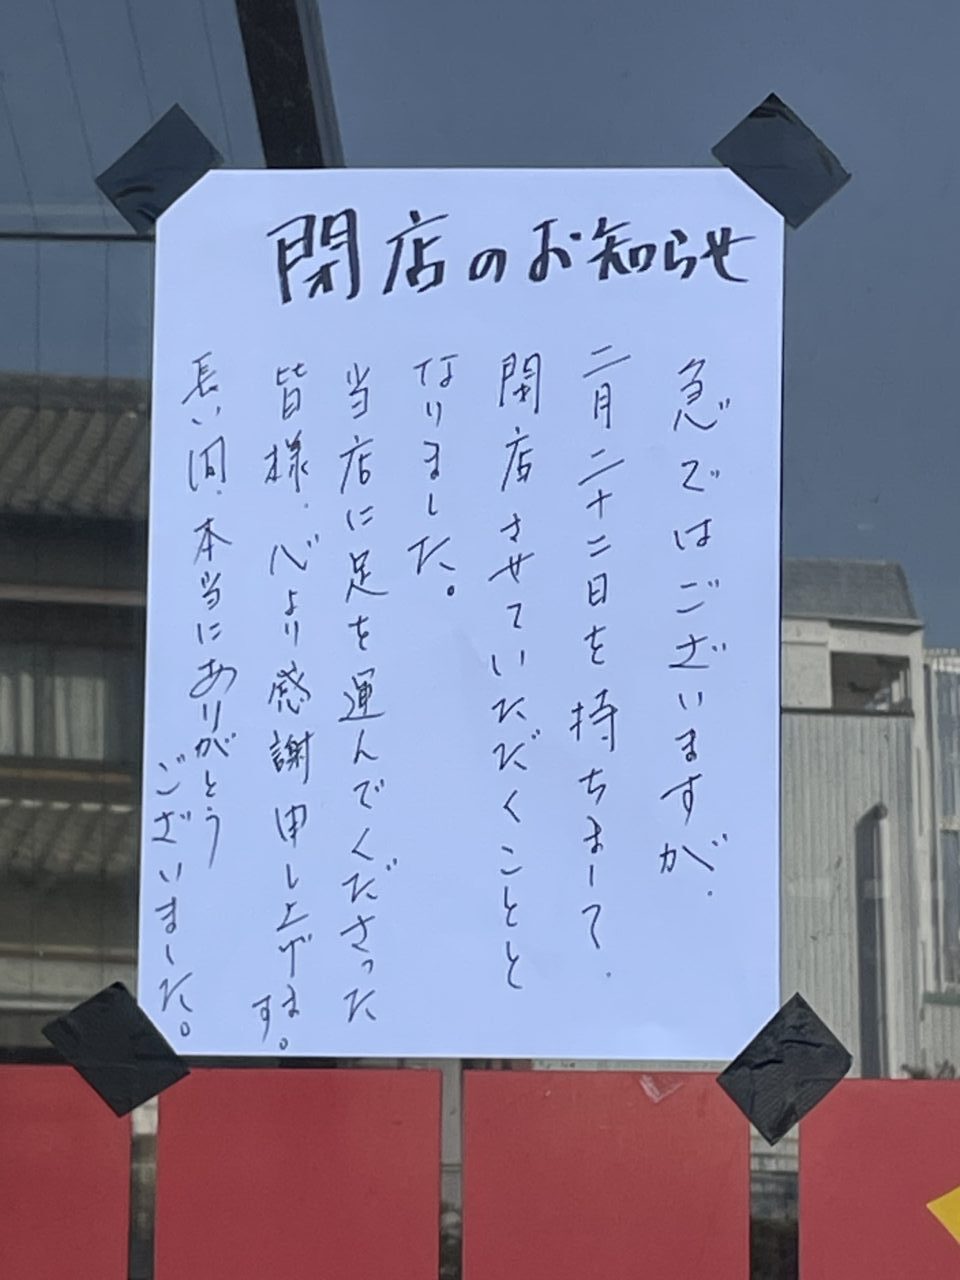 閉店のお知らせ
急ではございますが、
二月二十二日を持ちまして、
閉店させていただくことと
なりました。
当店に足を運んでくださった
皆様、心より感謝申し上げます。
長い間、本当にありがとう
ございました。